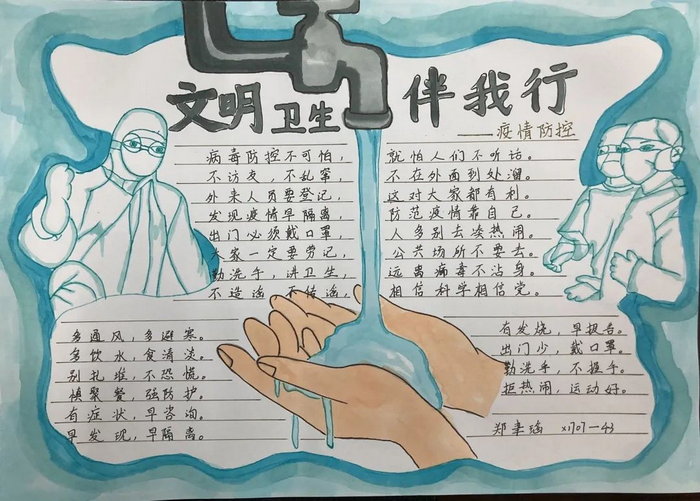 文明卫生 伴我行
——疫情防控
病毒防控不可怕，
不访友，不乱窜，
外来人员要登记，
发现疫情早隔离，
出门必须戴口罩
大家一定要劳记，
勤洗手，讲卫生，
不造谣，不传谣，
就怕人们不听话。
不在外面到处溜。
这对大家都有利。
防范疫情靠自己。
人多别去凑热闹。
公共场所不要去。
远离病毒不沾身。
相信科学相信党。
多通风，多避寒。
多饮水，食清淡。
别扎堆，不恐慌。
慎聚餐，强防护。
有症状，早咨询。
早发现，早隔离。
有发烧，早报告。
出门少，戴口罩。
勤洗手，不握手。
拒热闹，运动好。
郑聿瑶